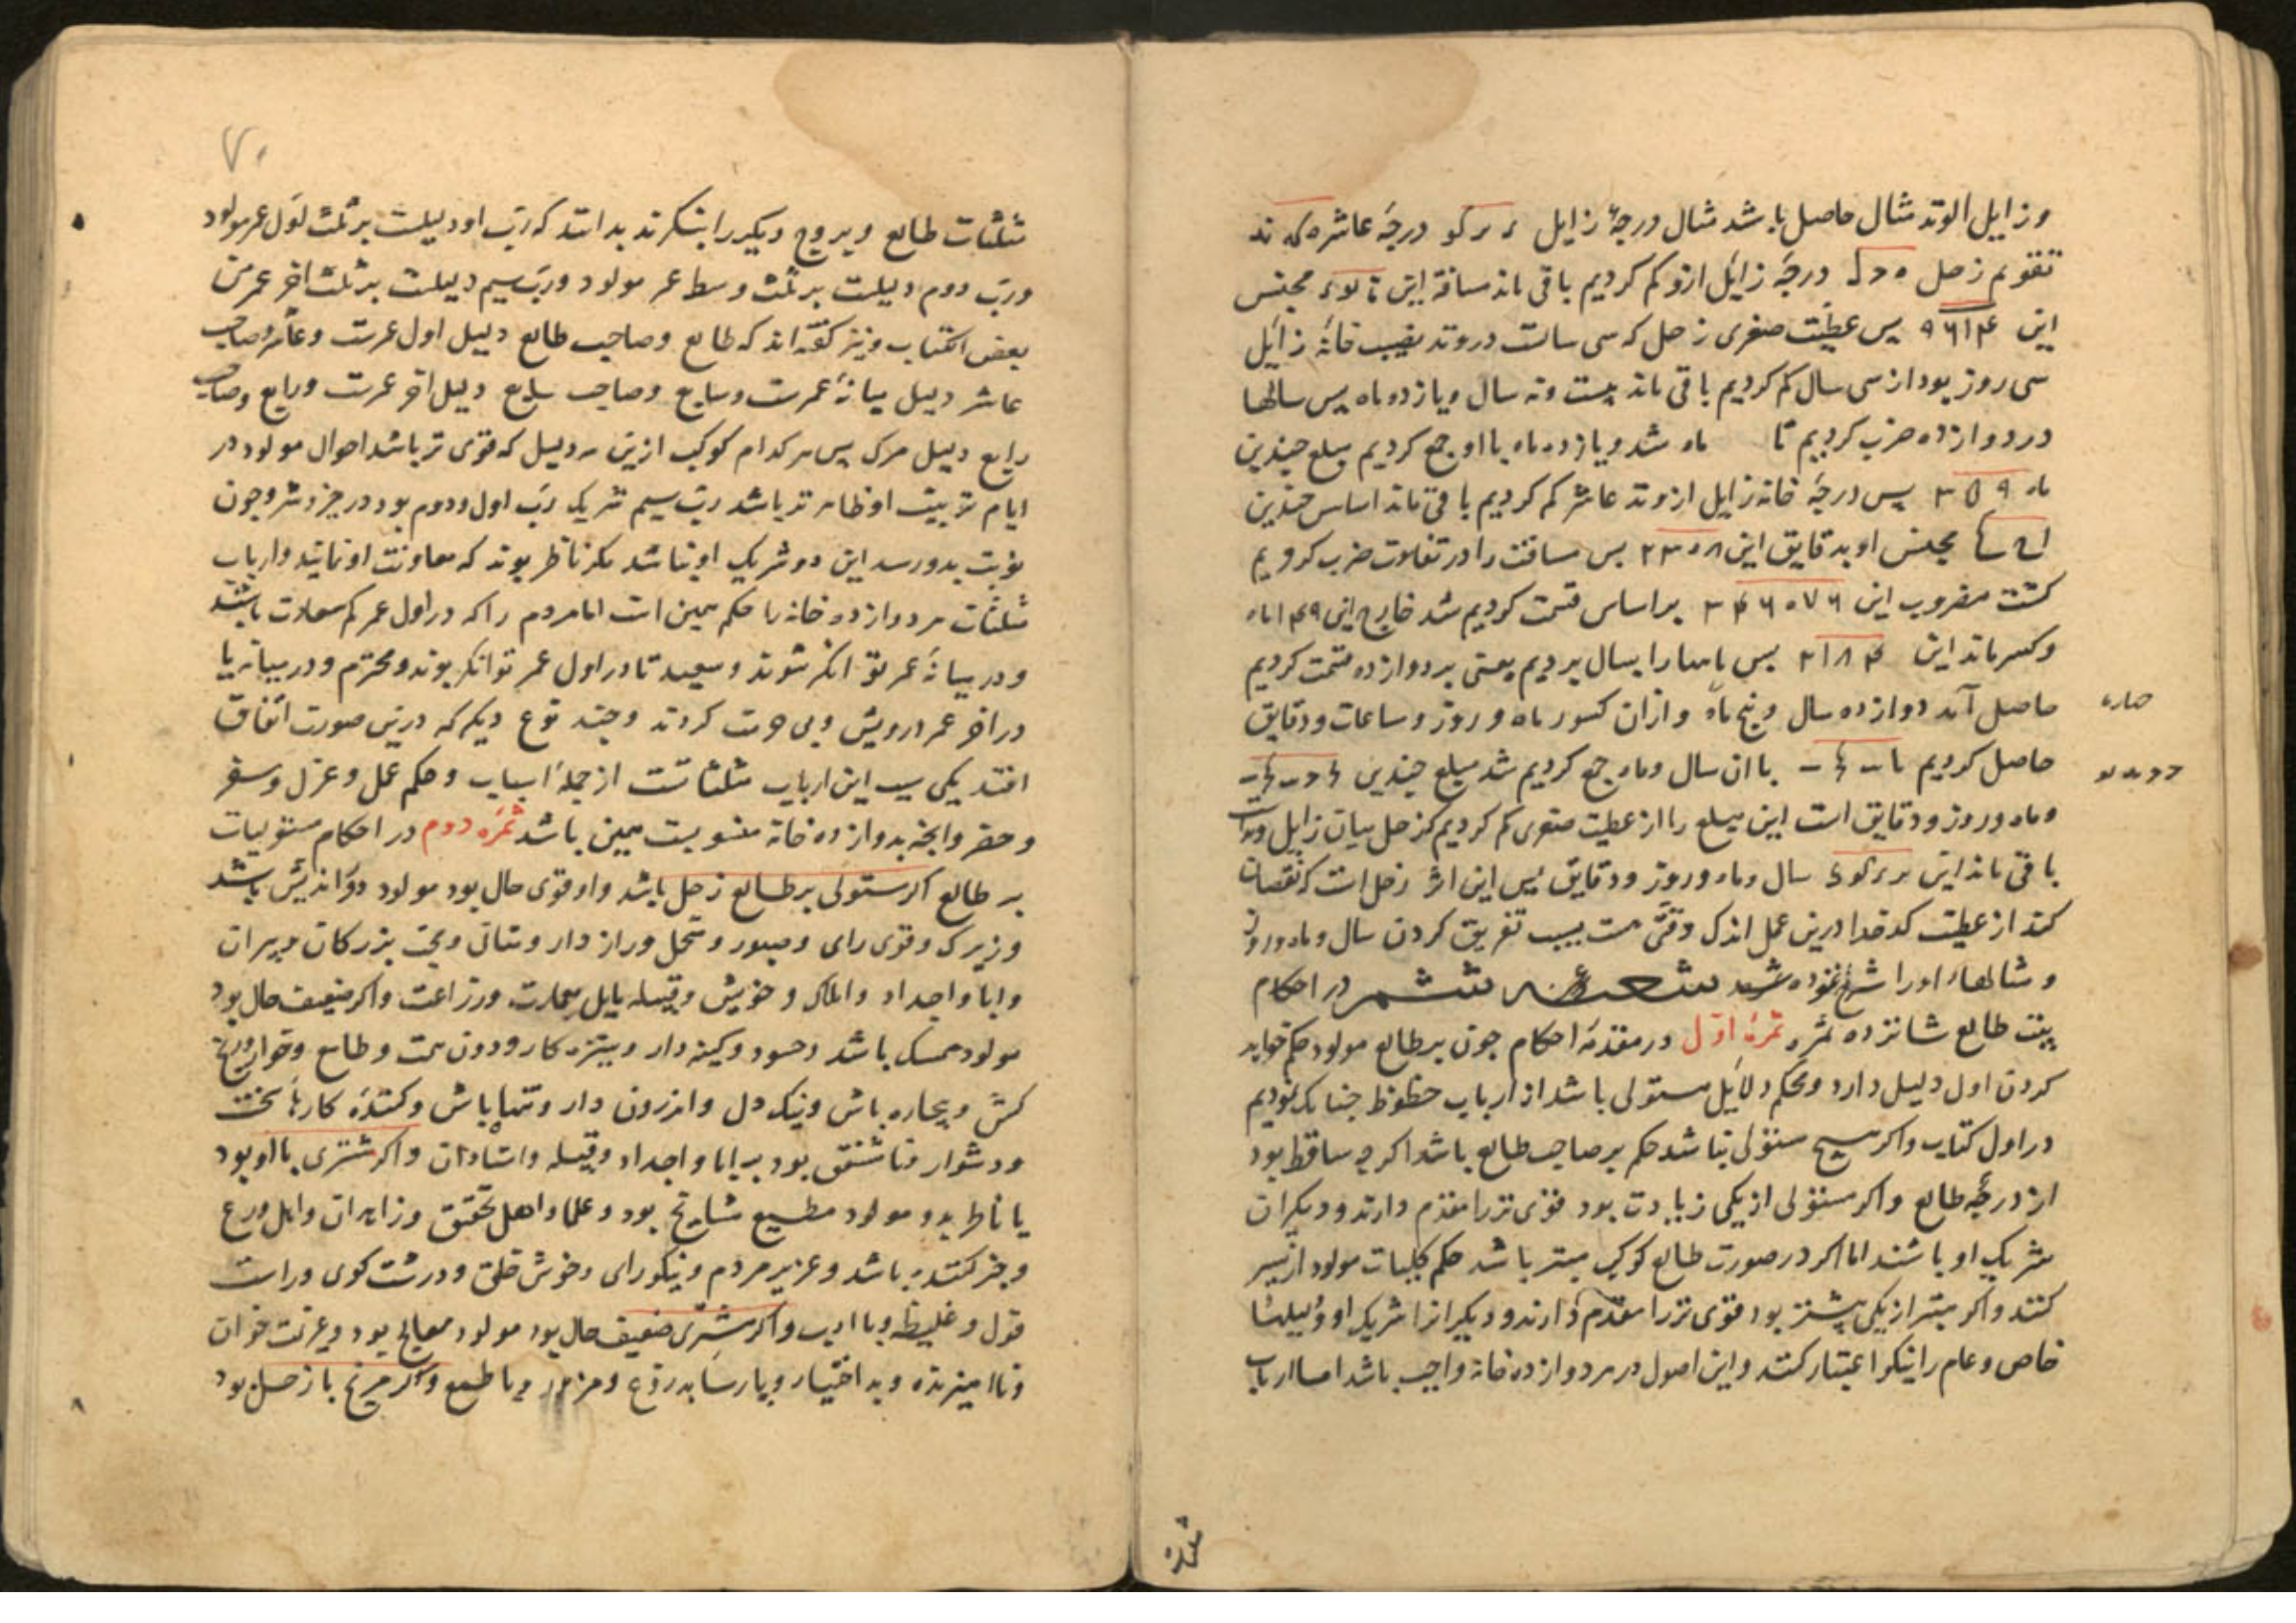 وزایل الوتد مثال حاصل باشد مثال درجهٔ زایل درجهٔ عاشره که ند
تقویم زحل درجهٔ زایل ازو کم کردیم باقی ماند مسافة این مجنس
این ۹۶۱۴ پس عطیت صغری زحل که سی سالست در وتد بغیب خانهٔ زایل
سی روز بود از سی سال کم کردیم باقی ماند بیست ونه سال ویازده ماه پس سالها
در دوازده ضرب کردیم تا ماه شد ویازده ماه بااو جمع کردیم مبلغ چندین
ماه ۳۵۹ پس درجهٔ خانه زایل از وتد عاشر کم کردیم باقی ماند اساس چندین
مجنس او بدقایق این ۲۳۰۸ پس مسافت را در تفاوت ضرب کردیم
کشت مضروب این ۳۴۶۰۷۶ بر اساس قسمت کردیم شد خارج این ۱۴۹ ماه
وکسر ماند این ۲۱۸۴ پس ماهها را بسال بردیم یعنی بر دوازده قسمت کردیم
حاصل آمد دوازده سال وپنج ماه وازان کسور ماه و روز وساعات ودقایق
حاصل کردیم باان سال وماه جمع کردیم شد مبلغ چندین
وماه وروز ودقایق است این مبلغ را از عطیت صغری کم کردیم کز حل میان زایل ووتد
باقی ماند این سال وماه وروز ودقایق پس این اثر زحل است که نقصان
کند از عطیت کدخدا درین عمل اندک وقتی هست بسبب تفریق کردن سال وماه وروز
ومثالهاء اورا شرح نموده شد شعبهٔ ششم در احکام
بیت طالع شانزده ثمره ثمرهٔ اوّل در مقدمهٔ احکام چون بر طالع مولود حکم خواهد
کردن اول دلیل دارد ومحکم دلایل مستولی باشد از ارباب حظوظ چنانک نمودیم
در اول کتاب واکر هیچ مستولی نباشد حکم بر صاحب طالع باشد اکرچه ساقط بود
از درجهٔ طالع واکر مستولی از یکی زیادت بود قوی تر را مقدم دارند ودیکران
شریک او باشند اما اکر در صورت طالع کوکبی مبتز باشد حکم کلیات مولود از مبتز
کنند واکر مبتز از یکی بیشتر بود قوی تر را مقدم دارند ودیکر انرا شریک او ودلیلها
خاص وعام را نیکو اعتبار کنند واین اصول در هر دوازده خانه واجب باشد اما ارباب
مثلثات
مثلثات طالع وبروج دیکر را بنکرند بدانند که ربّ اول دلیلست بر ثلث اول عمر مولود
وربّ دوم دلیلست بر ثلث وسط عمر مولود وربّ سیم دلیلست بر ثلث اخر عمر من
بعض الکتاب ونیز کفته اند که طالع وصاحب طالع دلیل اول عمرست وعاشر وصاحب
عاشر دلیل میانهٔ عمرست وسابع وصاحب سابع دلیل اخر عمرست ورابع وصاحب
رابع دلیل مرک پس هر کدام کوکب ازین سه دلیل که قوی تر باشد احوال مولود در
ایام تربیت او ظاهر تر باشد ربّ سیم شریک ربّ اول ودوم بود در خیر وشر وچون
نوبت بدو رسد این دو شریک او نباشد مکر ناظر بوند که معاونت او نمایند وارباب
مثلثات هر دوازده خانه را حکم همین است اما مردم را که در اول عمر کم سعادت باشند
ودر میانهٔ عمر توانکر شوند وسعید تا در اول عمر توانکر بوند ومحترم ودر میانه یا
در اخر عمر درویش وبی حرمت کردند وچند نوع دیکر که درین صورت اتفاق
افتد یکی سبب این ارباب مثلثاتست از جملهٔ اسباب وحکم عمل وعزل وسفر
وحضر وانچه بدوازده خانه منسوبست همین باشد ثمرهٔ دوم در احکام مستولیات
بر طالع اکر مستولی بر طالع زحل باشد واو قوی حال بود مولود دوراندیش باشد
وزیرک وقوی رای وصبور ومتحمل وراز دار ومتانی ومحب بزرکان وپیران
وابا واجداد واملاک وخویش وقبیله مایل بعمارت وزراعت واکر ضعیف حال بود
مولود ممسک باشد وحسود وکینه دار وستیزه کار ودون همت وطامع وخوار ورنج
کش وبیچاره باش وتنک دل واندرون دار وتنها باش وکشندهٔ کارهاء سخت
ودشوار ونا مشفق بود بر ابا واجداد وقبیله واستادان واکر مشتری بااو بود
یا ناظر بدو مولود مطیع مشایخ بود وعلما واهل تحقیق وزاهدان واهل ورع
وخیر کننده باشد وعزیز مردم ونیکو رای وخوش خلق ودرشت کوی وراست
قول وغلیظ وبا ادب واکر مشتری ضعیف حال بود مولود معالج بود وعزلت خوان
وناامیزنده وبد اختیار وپارسا بدروغ ومزور وبا طمع واکر مریخ با زحل بود